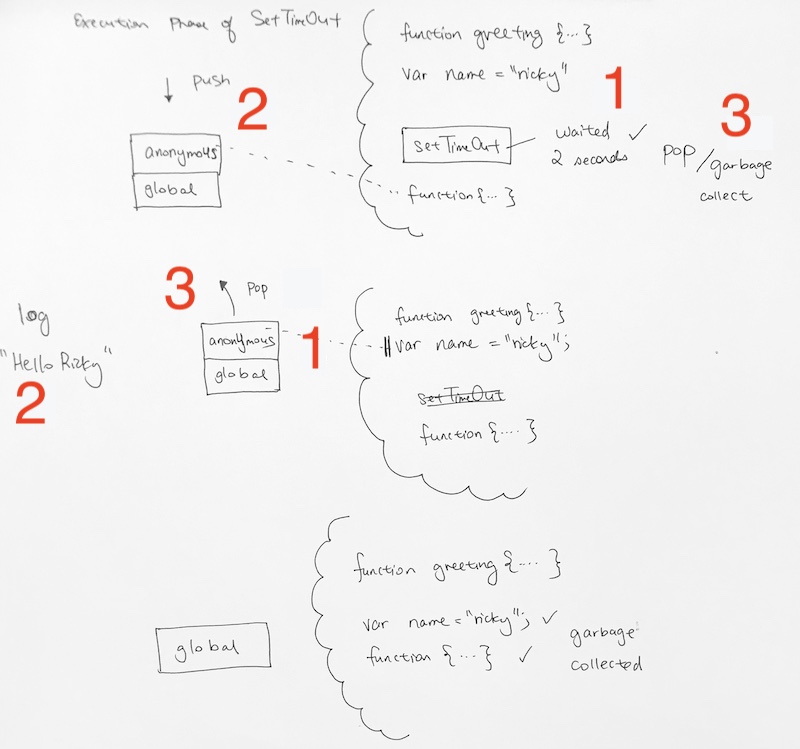 Execution Phase of SetTimeOut
push
2
anonymous
global
function greeting {...}
var name = "ricky"
1
setTimeOut
waited ✓
2 seconds
function {... }
3
pop/garbage
collect
log
"Hello Ricky"
2
3
Pop
anonymous
global
1
function greeting {... }
var name = "ricky";
setTimeOut
function {.... }
global
function greeting {... }
var name = "ricky"; ✓
function {... } ✓
garbage
collected